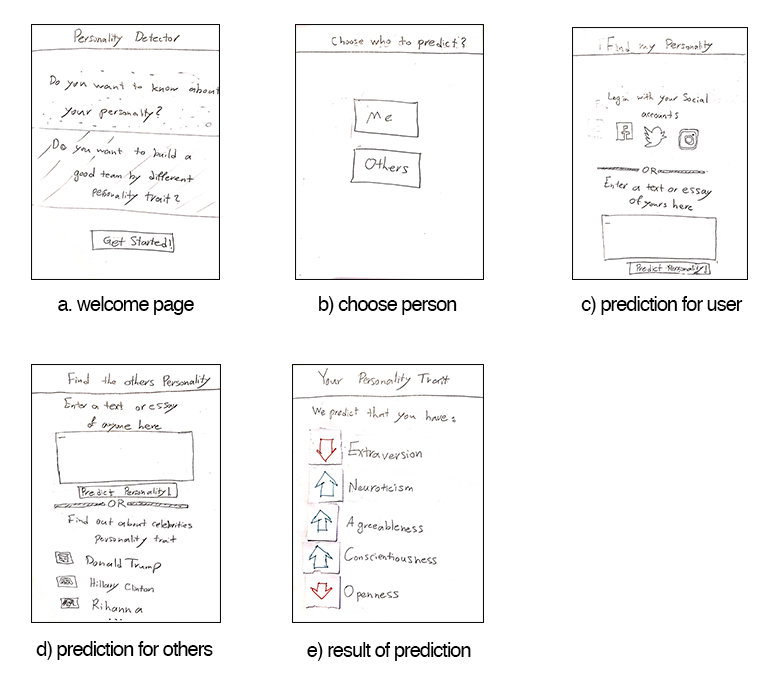 Personality Detector
Do you want to know about
your personality?
Do you want to build a
good team by different
personality trait?
Get Started!
a. welcome page
Choose who to predict?
Me
Others
b) choose person
Find my Personality
Login with your Social
accounts
OR
Enter a text or essay
of yours here
Predict Personality!
c) prediction for user
Find the others Personality
Enter a text or essay
of anyone here
Predict Personality!
OR
Find out about celebrities
personality trait
Donald Trump
Hillary Clinton
Rihanna
...
d) prediction for others
Your Personality Trait
We predict that you have:
Extraversion
Neuroticism
Agreeableness
Conscientiousness
Openness
e) result of prediction